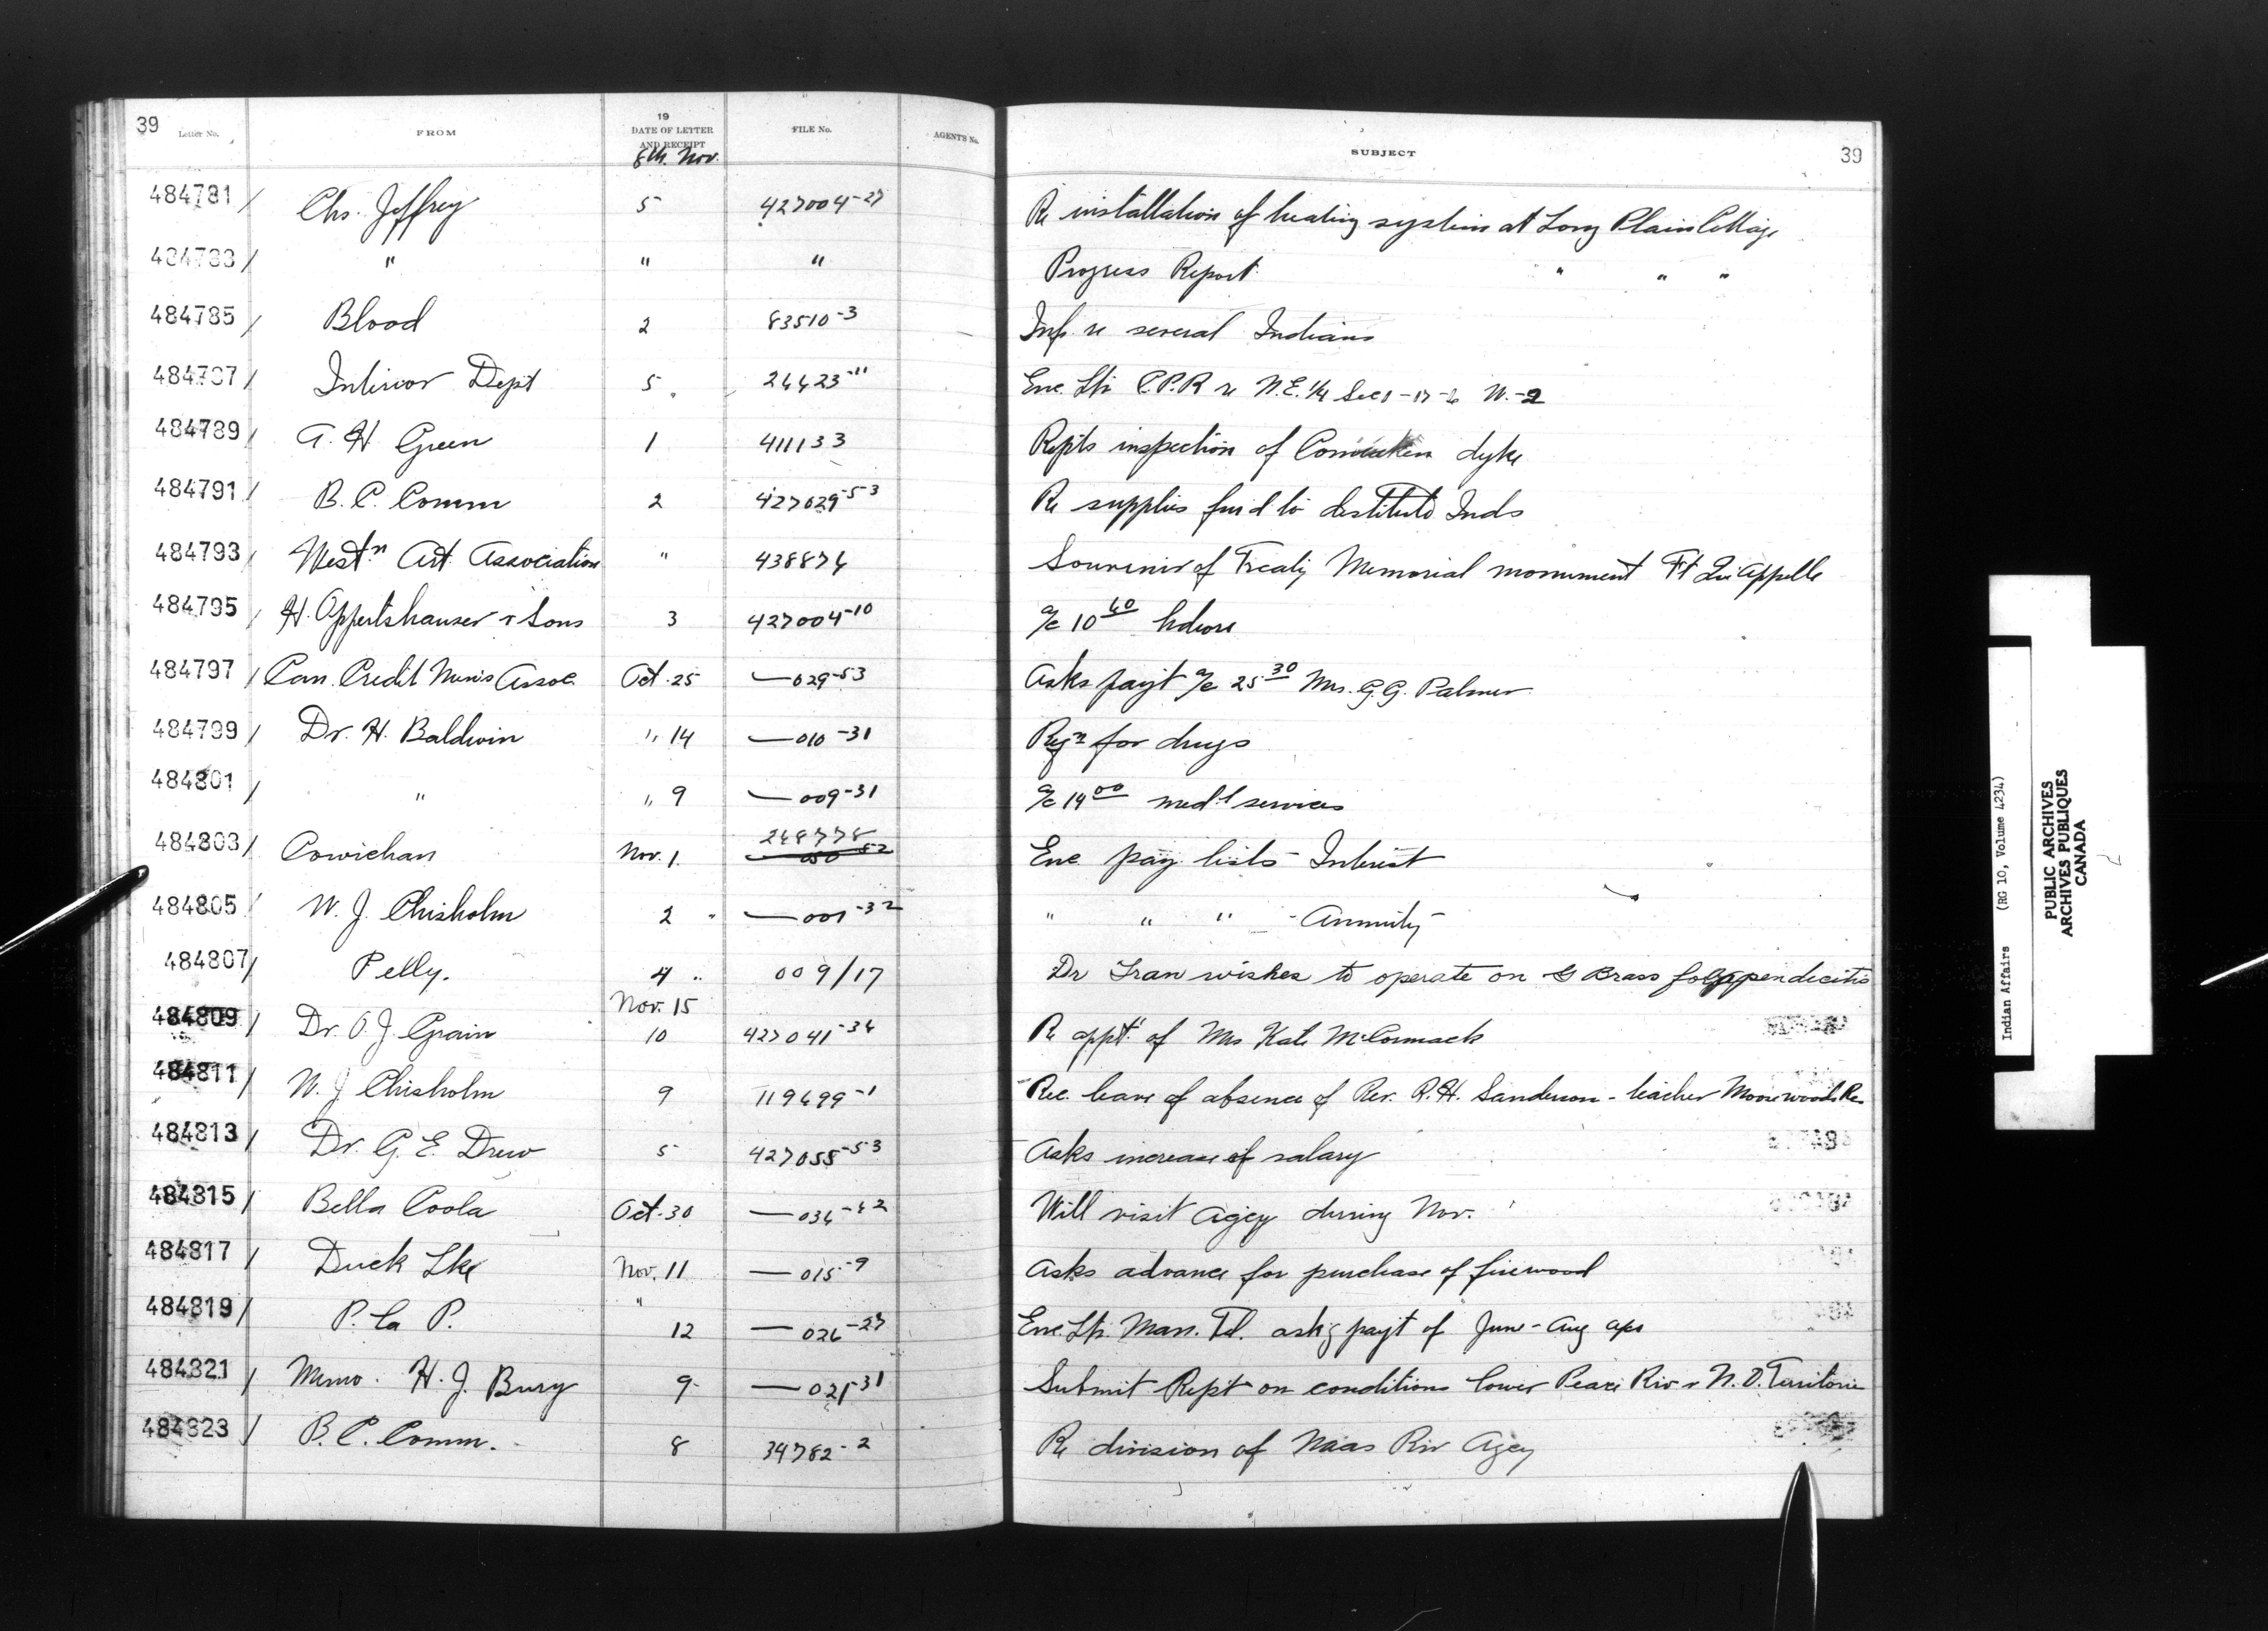 39 Letter No. FROM 19 DATE OF LETTER AND RECEIPT FILE No. AGENT'S No. SUBJECT 39
8th. Nov.
484781 / Chs. Jeffrey 5 427004-27 Re installation of heating system at Long Plain Cottage
484783 / " " " Progress Report " " "
484785 / Blood 2 83510-3 Inf. re several Indians
484787 / Interior Dept 5 24423-11 Enc. Ltr C.P.R re N.E. 1/4 Sec 1-17-6 W.-2
484789 / A. H Green 1 411133 Repts inspection of dyke
484791 / B. C. Comm 2 427029-53 Re supplies furd to destitute Inds
484793 / Westn Art Association " 438874 Souvenir of Treaty Memorial monument Ft Qu'Appelle
484795 / H. Oppertshauser & Sons 3 427004-10 a/c 10 60 hdwre
484797 / Can. Credit Men's Assoc. Oct. 25 —029-53 Asks payt a/c 25 30 Mrs. G.G. Palmer
484799 / Dr. H. Baldwin " 14 —010-31 Reqn for drugs
484801 / " " 9 —009-31 a/c 14 00 medl services
484803 / Cowichan Nov. 1. 248778 Enc pay lists - Interest
484805 / W. J. Chisholm 2 " —001-32 " " " - Annuity -
484807 / Pelly. 4 " 009/17 Dr Tran wishes to operate on G Brass for appendecitis
Nov. 15
484809 / Dr. O. J. Grain 10 427041-34 Re appt of Mrs Kate McCormack
484811 / W. J Chisholm 9 119499-1 Rec. leave of absence of Rev. R.H. Sanderson - teacher Moosewoods Res
484813 / Dr. G. E. Drew 5 427055-53 Asks increase of salary
484815 / Bella Coola Oct. 30 —034-42 Will visit Agcy during Nov.
484817 / Duck Lke Nov. 11 —015-9 Asks advance for purchase of firewood
484819 / P. la P. " 12 —026-27 Enc. Ltr. Man. Tel. askg payt of June - Aug a/cs
484821 / Memo. H. J. Bury 9 —021-31 Submit Rept on conditions lower Peace Riv & N.W. Territories
484823 / B. C. Comm. 8 34782-2 Re division of Naas Riv Agcy
Indian Affairs (RG 10, Volume 4234)
PUBLIC ARCHIVES
ARCHIVES PUBLIQUES
CANADA